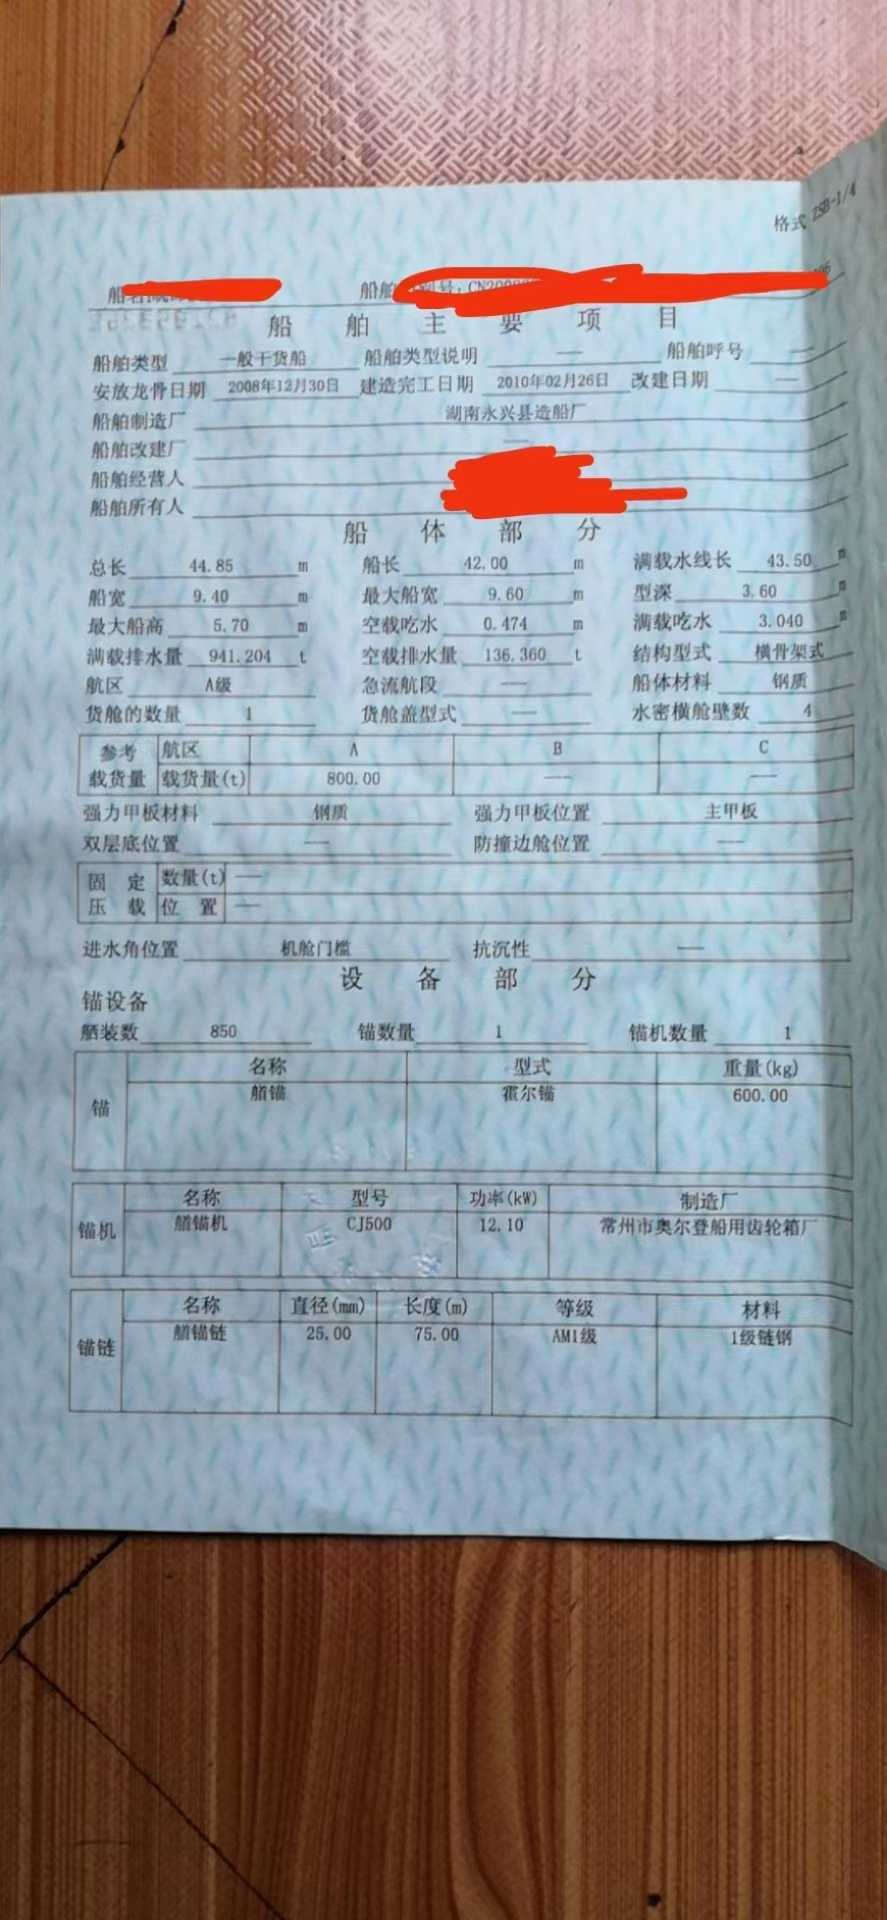 格式 ZSB-1/4
船 船舶 号：CN2009
船 舶 主 要 项 目
船舶类型 一般干货船 船舶类型说明 —— 船舶呼号 ——
安放龙骨日期 2008年12月30日 建造完工日期 2010年02月26日 改建日期 ——
船舶制造厂 湖南永兴县造船厂
船舶改建厂 ——
船舶经营人
船舶所有人
船 体 部 分
总长 44.85 m 船长 42.00 m 满载水线长 43.50 m
船宽 9.40 m 最大船宽 9.60 m 型深 3.60 m
最大船高 5.70 m 空载吃水 0.474 m 满载吃水 3.040 m
满载排水量 941.204 t 空载排水量 136.360 t 结构型式 横骨架式
航区 A级 急流航段 —— 船体材料 钢质
货舱的数量 1 货舱盖型式 —— 水密横舱壁数 4
参考 航区 A B C
载货量 载货量(t) 800.00 —— ——
强力甲板材料 钢质 强力甲板位置 主甲板
双层底位置 —— 防撞边舱位置 ——
固 定 数量(t) ——
压 载 位 置 ——
进水角位置 机舱门槛 抗沉性 ——
设 备 部 分
锚设备
舾装数 850 锚数量 1 锚机数量 1
名称 型式 重量(kg)
锚 艏锚 霍尔锚 600.00
名称 型号 功率(kW) 制造厂
锚机 艏锚机 CJ500 12.10 常州市奥尔登船用齿轮箱厂
名称 直径(mm) 长度(m) 等级 材料
锚链 艏锚链 25.00 75.00 AM1级 1级链钢